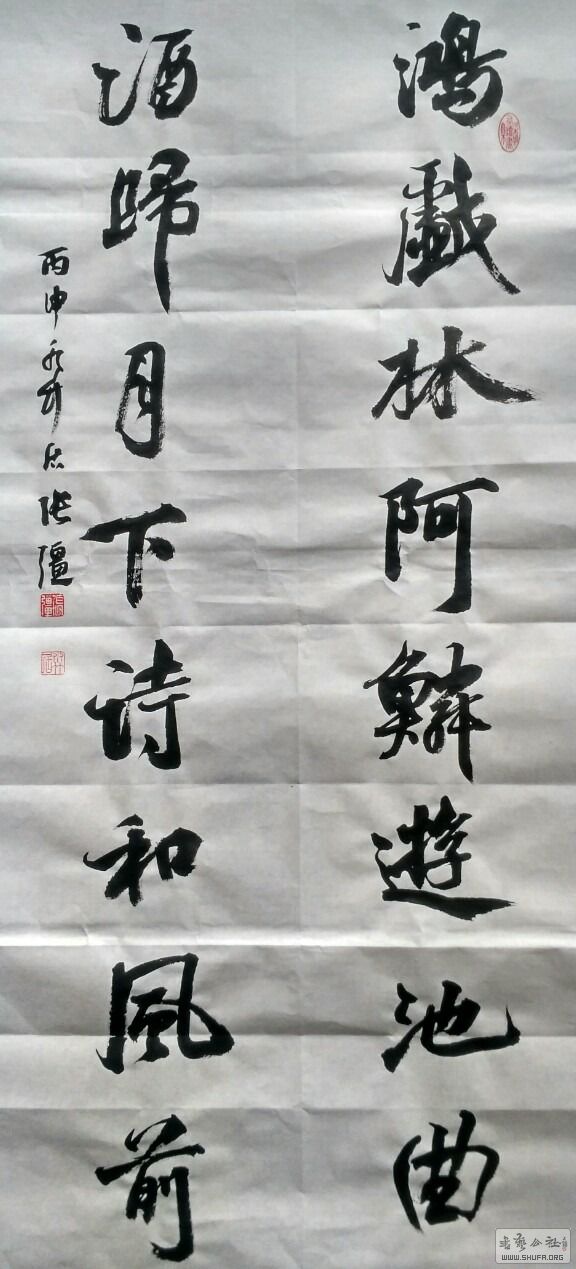 鴻戲林阿鱗遊池曲
酒歸月下詩和風前
丙申 張疆
書藝公社
WWW.SHUFA.ORG